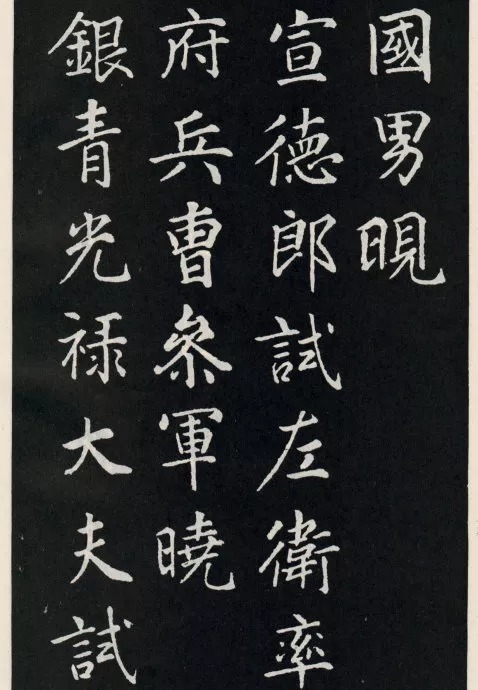 國男晛
宣德郎試左衛率
府兵曹叅軍曉
銀青光禄大夫試